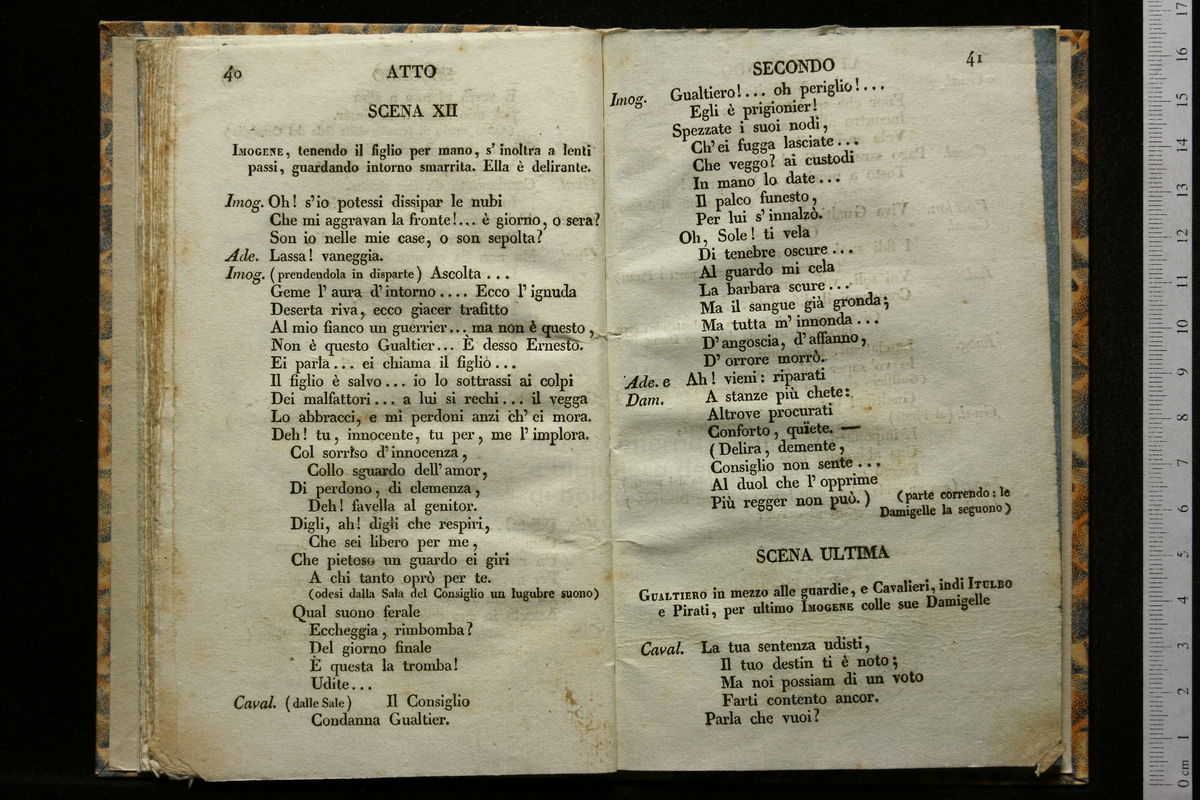 40 ATTO
SCENA XII
IMOGENE, tenendo il figlio per mano, s' inoltra a lenti
passi, guardando intorno smarrita. Ella è delirante.
Imog. Oh! s'io potessi dissipar le nubi
Che mi aggravan la fronte!... è giorno, o sera?
Son io nelle mie case, o son sepolta?
Ade. Lassa! vaneggia.
Imog. (prendendola in disparte) Ascolta ...
Geme l' aura d'intorno .... Ecco l' ignuda
Deserta riva, ecco giacer trafitto
Al mio fianco un guerrier... ma non è questo,
Non è questo Gualtier... È desso Ernesto.
Ei parla... ei chiama il figlio ...
Il figlio è salvo ... io lo sottrassi ai colpi
Dei malfattori... a lui si rechi... il vegga
Lo abbracci, e mi perdoni anzi ch' ei mora.
Deh! tu, innocente, tu per, me l' implora.
Col sorriso d'innocenza,
Collo sguardo dell'amor,
Di perdono, di clemenza,
Deh! favella al genitor.
Digli, ah! digli che respiri,
Che sei libero per me,
Che pietoso un guardo ei giri
A chi tanto oprò per te.
(odesi dalla Sala del Consiglio un lugubre suono)
Qual suono ferale
Eccheggia, rimbomba?
Del giorno finale
È questa la tromba!
Udite...
Caval. (dalle Sale) Il Consiglio
Condanna Gualtier.
SECONDO 41
Imog. Gualtiero!... oh periglio!...
Egli è prigionier!
Spezzate i suoi nodi,
Ch' ei fugga lasciate...
Che veggo? ai custodi
In mano lo date...
Il palco funesto,
Per lui s' innalzò.
Oh, Sole! ti vela
Di tenebre oscure...
Al guardo mi cela
La barbara scure...
Ma il sangue già gronda;
Ma tutta m' innonda ...
D' angoscia, d' affanno,
D' orrore morrò.
Ade. e Ah! vieni: riparati
Dam. A stanze più chete:
Altrove procurati
Conforto, quïete. —
(Delira, demente,
Consiglio non sente...
Al duol che l' opprime
Più regger non può.) (parte correndo: le
Damigelle la seguono)
SCENA ULTIMA
GUALTIERO in mezzo alle guardie, e Cavalieri, indi ITULBO
e Pirati, per ultimo IMOGENE colle sue Damigelle
Caval. La tua sentenza udisti,
Il tuo destin ti è noto;
Ma noi possiam di un voto
Farti contento ancor.
Parla che vuoi?
17
16
15
14
13
12
11
10
9
8
7
6
5
4
3
2
1
0 cm